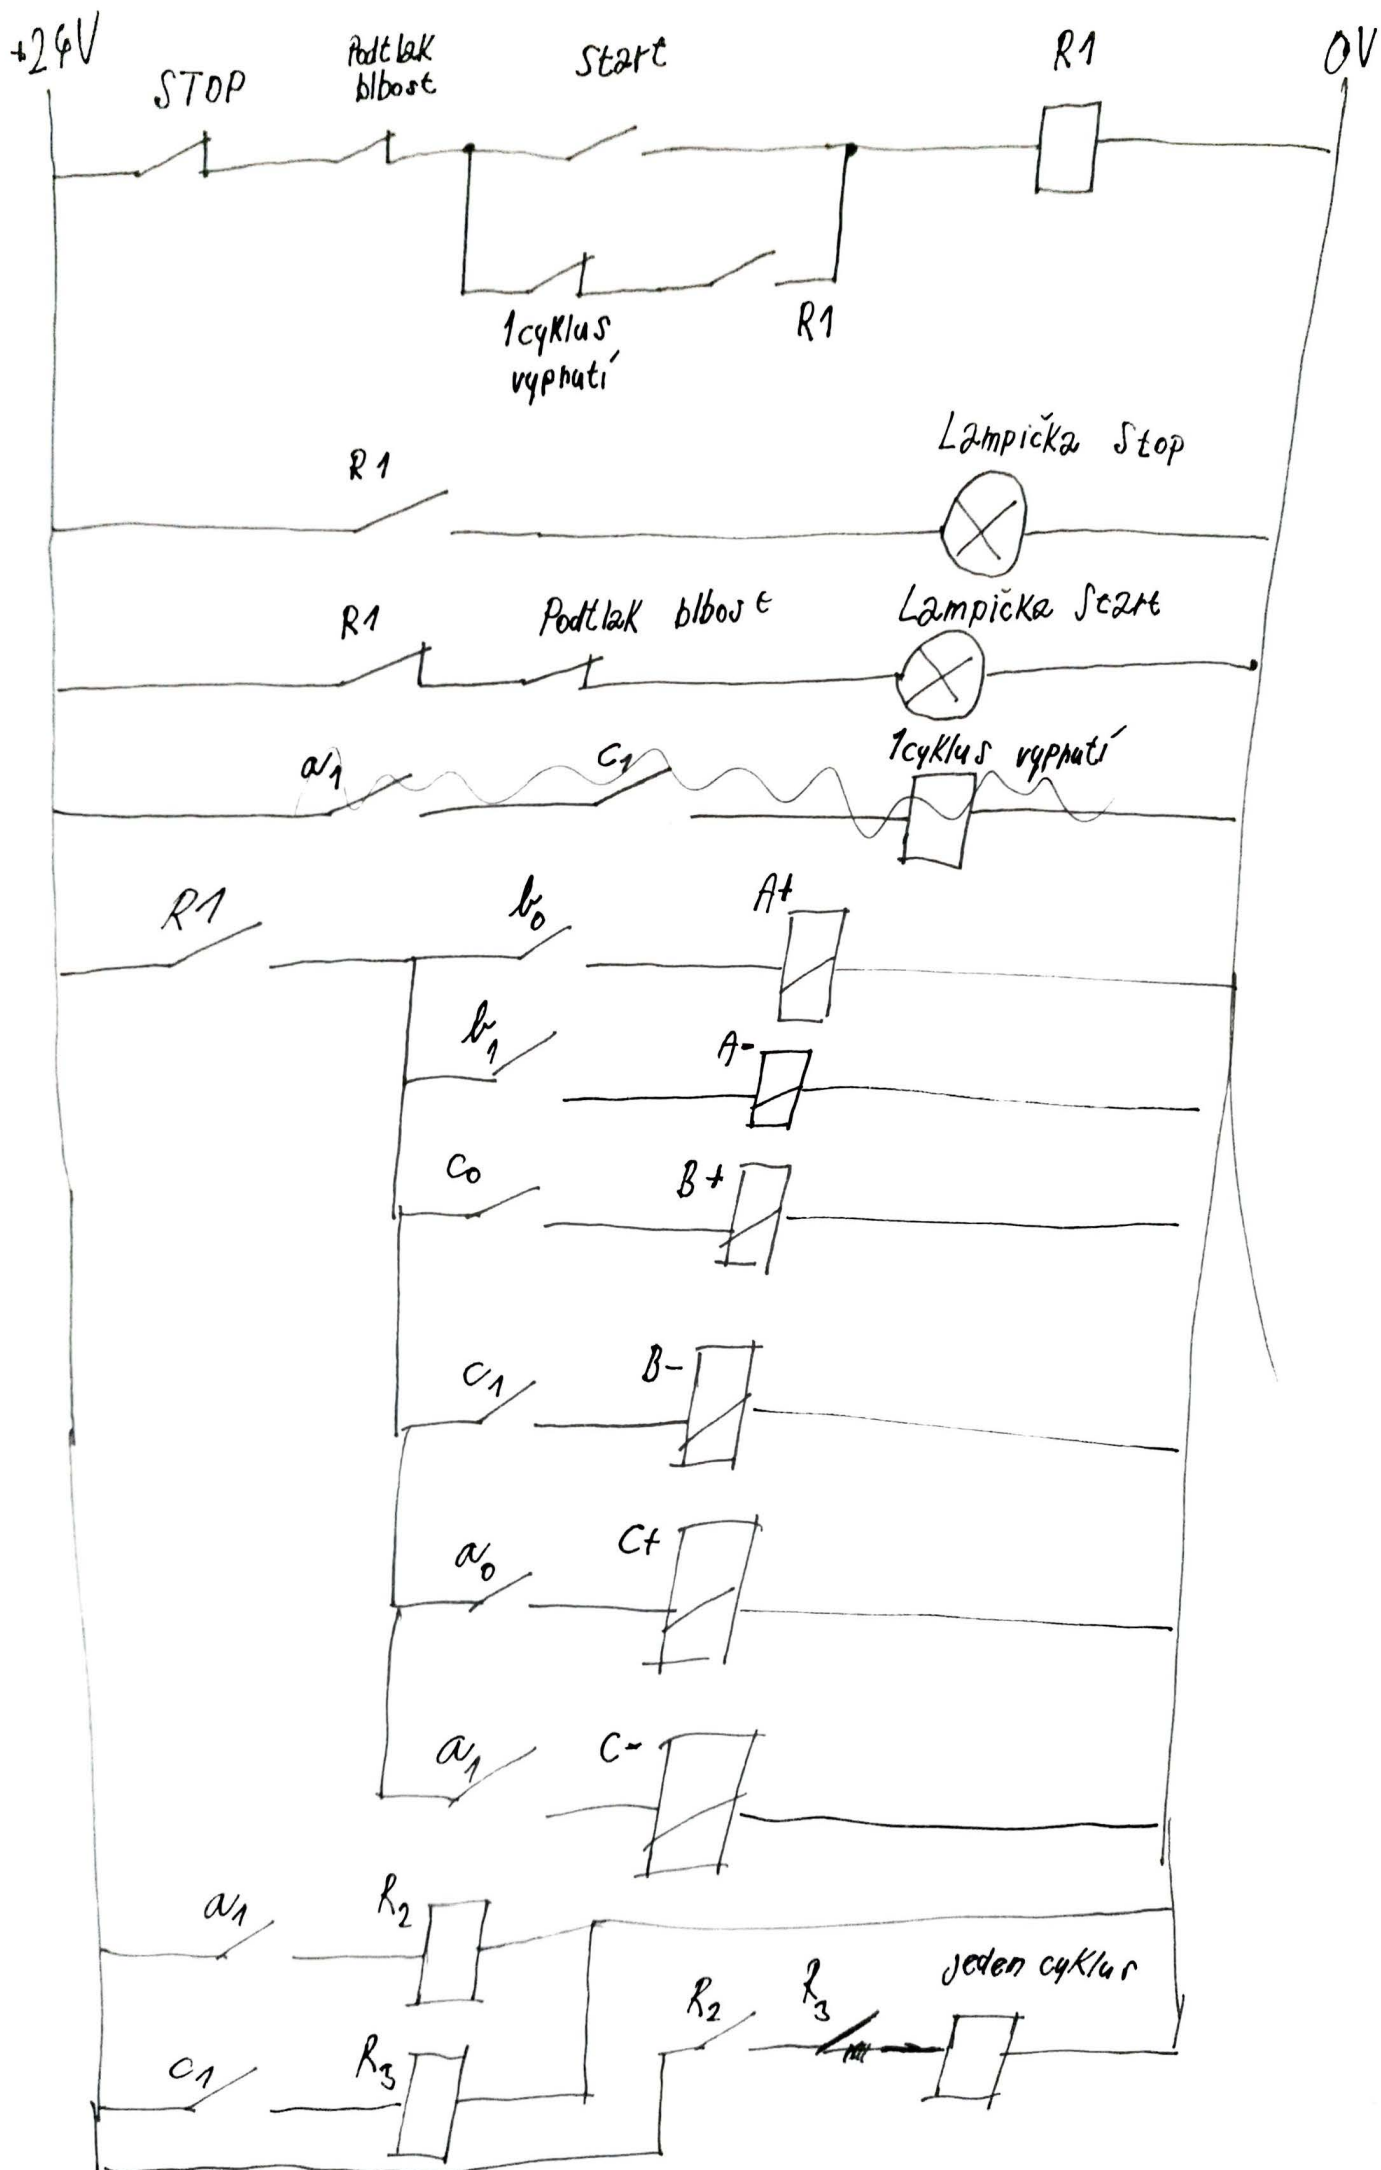 +24V
STOP
Podtlak
blbost
Start
R1
0V
1cyklus
vypnutí
R1
R1
Lampička Stop
R1
Podtlak blbost
Lampička Start
a1
c1
1cyklus vypnutí
R1
b0
A+
b1
A-
c0
B+
c1
B-
a0
C+
a1
C-
a1
R2
c1
R3
R2
R3
jeden cyklus